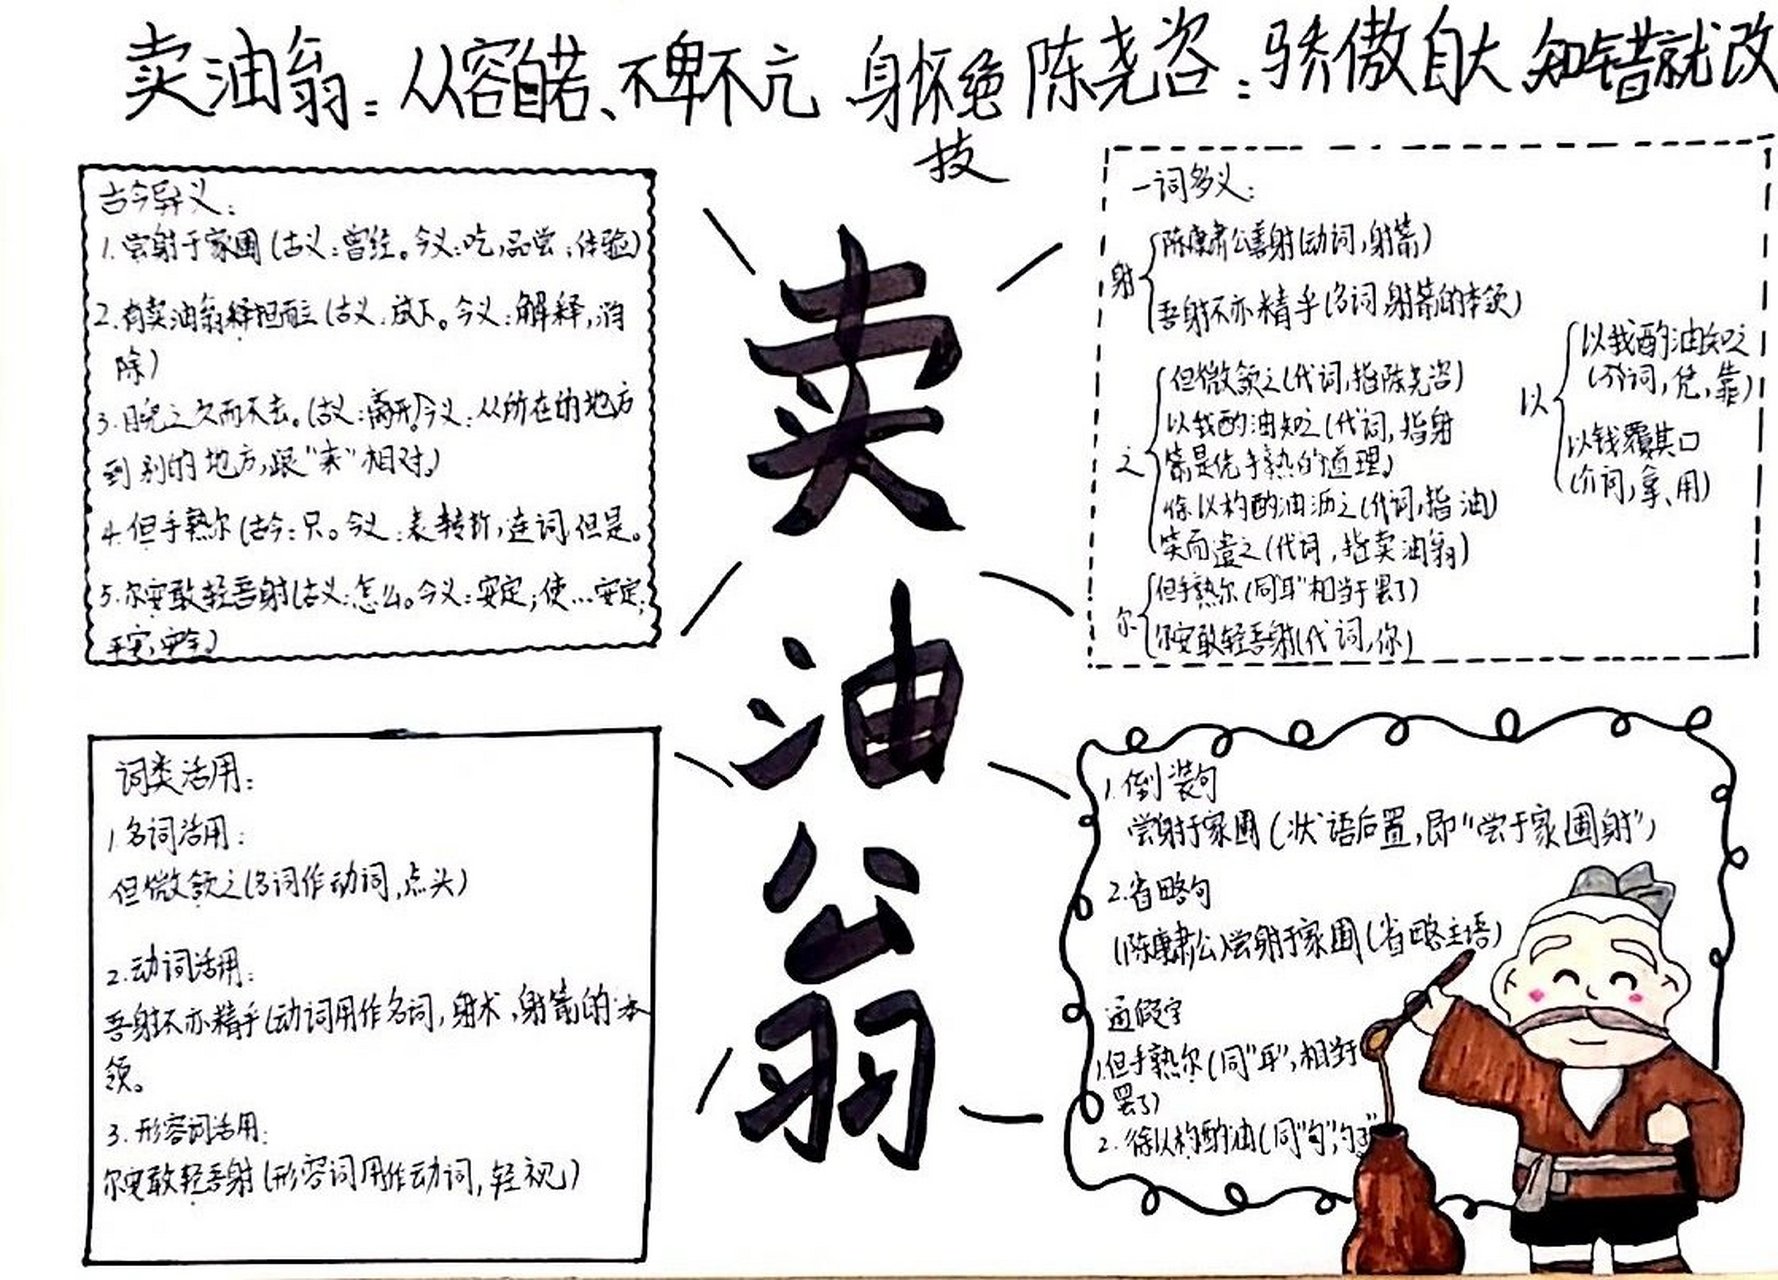 卖油翁：从容自若、不卑不亢 身怀绝技
陈尧咨：骄傲自大 知错就改
古今异义：
1.尝射于家圃(古义：曾经。今义：吃，品尝；体验)
2.有卖油翁释担而立(古义：放下。今义：解释，消
除)
3.睨之久而不去。(古义：离开。今义：从所在的地方
到别的地方，跟"来"相对。)
4.但手熟尔(古今：只。今义：表转折，连词，但是。
5.尔安敢轻吾射(古义：怎么。今义：安定；使…安定；
平安，安全)
卖油翁
一词多义：
射
陈康肃公善射(动词，射箭)
吾射不亦精乎(名词，射箭的本领)
之
但微颔之(代词，指陈尧咨)
以我酌油知之(代词，指射
箭是凭手熟的道理)
徐以杓酌油沥之(代词，指油)
笑而遣之(代词，指卖油翁)
尔
但手熟尔(同"耳"相当于罢了)
尔安敢轻吾射(代词，你)
以
以我酌油知之
(介词，凭，靠)
以钱覆其口
(介词，拿、用)
词类活用：
1.名词活用：
但微颔之(名词作动词，点头)
2.动词活用：
吾射不亦精乎(动词用作名词，射术，射箭的本
领。
3.形容词活用：
尔安敢轻吾射(形容词用作动词，轻视)
1.倒装句
尝射于家圃(状语后置，即"尝于家圃射")
2.省略句
(陈康肃公)尝射于家圃(省略主语)
通假字
1.但手熟尔(同"耳"，相当于
罢了)
2.徐以杓酌油(同"勺"，勺子